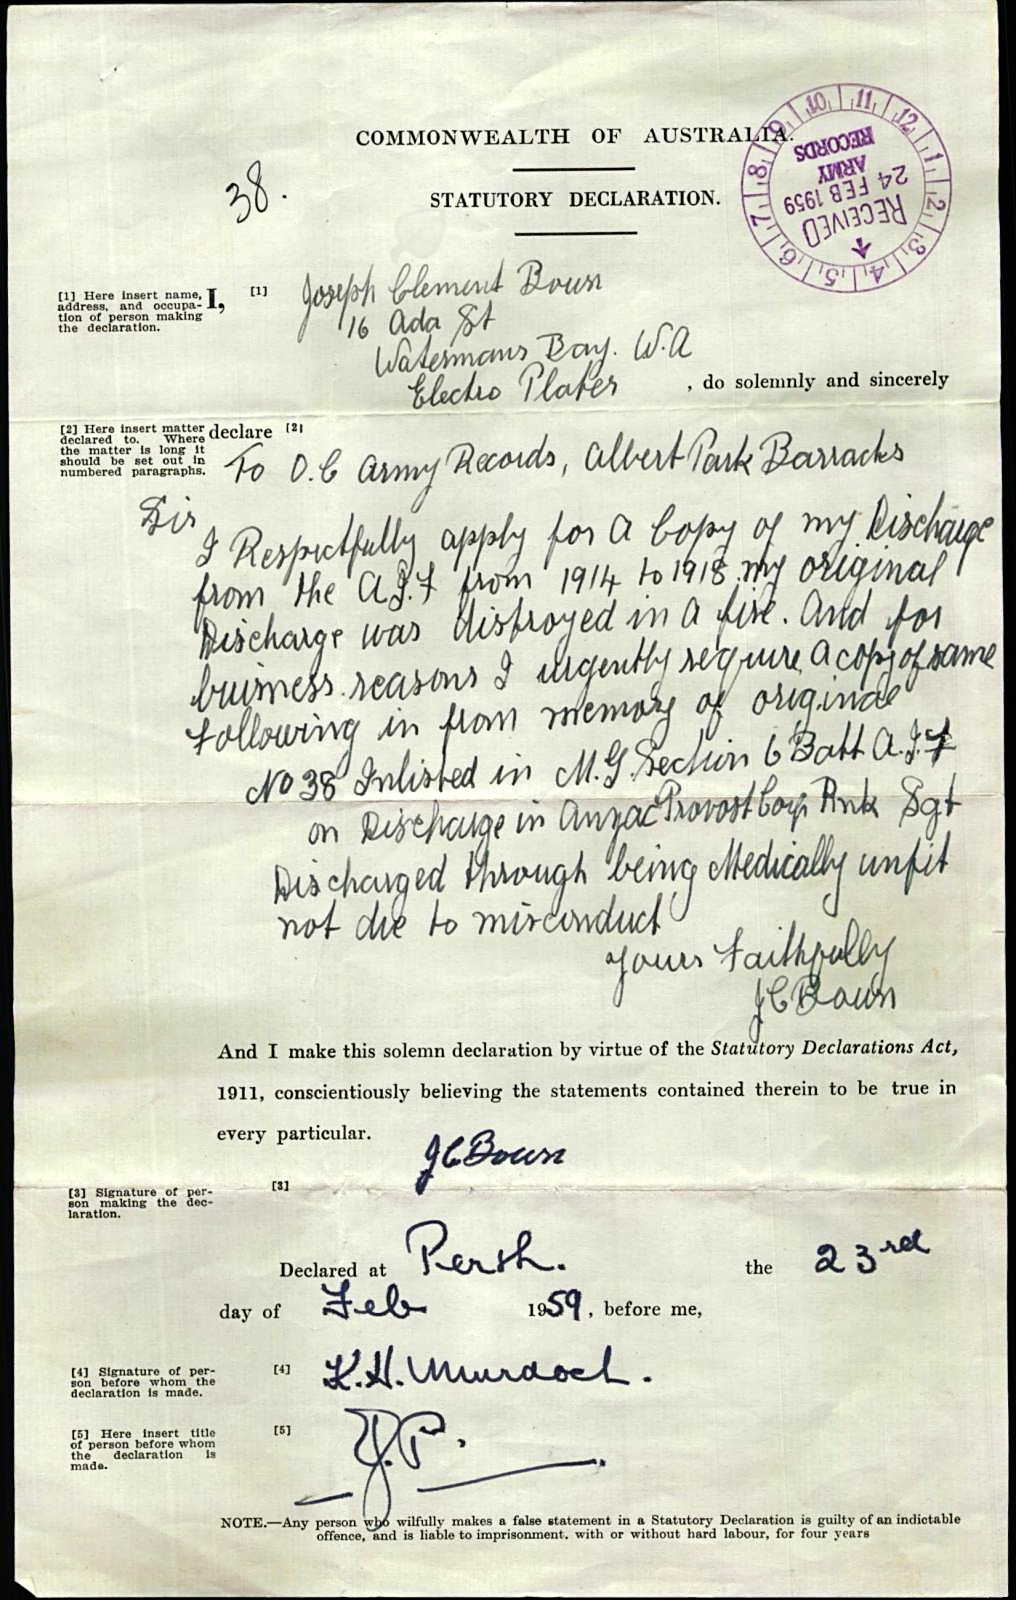 COMMONWEALTH OF AUSTRALIA.
38.
STATUTORY DECLARATION.
RECEIVED
24 FEB 1959
ARMY
RECORDS
1 2 3 4 5 6 7 8 9 10 11 12
[1] Here insert name, address, and occupa-
tion of person making
the declaration.
I, [1] Joseph Clement Bown
16 Ada St
Watermans Bay. W.A
Electro Plater , do solemnly and sincerely
[2] Here insert matter
declared to. Where
the matter is long it
should be set out in
numbered paragraphs.
declare [2]
To O.C Army Records, Albert Park Barracks
Sir
I Respectfully apply for a Copy of my Discharge
from the A.I.F from 1914 to 1918 my original
Discharge was distroyed in a fire. And for
buisness reasons I urgently require a copy of same
Following in from memory of original
No 38 Inlisted in M.G. Section 6 Batt A.I.F
on Discharge in Anzac Provost Corp Rnk Sgt
Discharged through being Medically unfit
not due to misconduct
Yours Faithfully
JC Bown
And I make this solemn declaration by virtue of the Statutory Declarations Act,
1911, conscientiously believing the statements contained therein to be true in
every particular.
JC Bown
[3] Signature of per-
son making the dec-
laration.
[3]
Declared at Perth. the 23rd
day of Feb 1959, before me,
[4] Signature of per-
son before whom the
declaration is made.
[4] K.H. Murdoch.
[5] Here insert title
of person before whom
the declaration is
made.
[5] J.P.
NOTE.—Any person who wilfully makes a false statement in a Statutory Declaration is guilty of an indictable
offence, and is liable to imprisonment, with or without hard labour, for four years